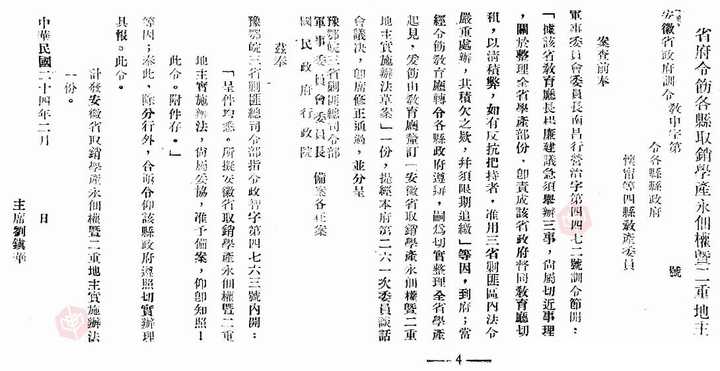 省府令飭各縣取銷學產永佃權暨二重地主
安徽省政府訓令 教中字第　　　號
令各縣縣政府
懷甯等四縣教產委員
案查前奉
軍事委員會委員長南昌行營治字第四四七二號訓令節開：
「據該省教育廳長楊廉建議急須舉辦三事，尚屬切近事理
，關於整理全省學產部份，卽責成該省政府督同教育廳切
租，以清積弊，如有反抗把持者，准用三省剿匪區內法令
嚴重處辦，其積欠之款，幷須限期追繳」等因，到府；當
經令飭教育廳轉令各縣政府遵辦，嗣爲切實整理全省學產
起見，爰飭由教育廳釐訂「安徽省取銷學產永佃權暨二重
地主實施辦法草案」一份，提經本府第二六一次委員談話
會議決，卽席修正通過，並分呈
豫鄂皖三省剿匪總司令部
軍事委員會委員長　備案各在案
國民政府行政院
茲奉
豫鄂皖三省剿匪總司令部指令政智字第四七六三號內開：
「呈件均悉。所擬安徽省取銷學產永佃權暨二重
地主實施辦法，尚屬妥協，准予備案，仰卽知照！
此令。附件存。」
等因；奉此，除分行外，合亟分仰該縣政府遵照切實辦理
具報。此令。
計發安徽省取銷學產永佃權暨二重地主實施辦法
一份。
中華民國二十四年二月　　　日
主席劉鎮華
— 4 —